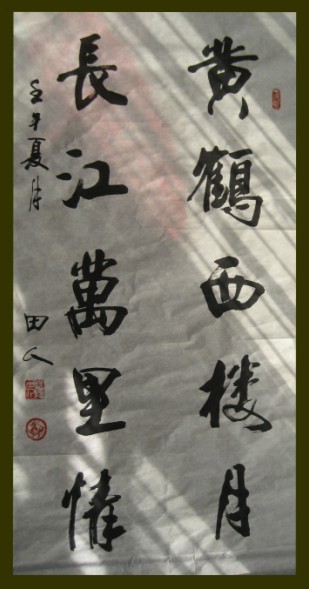 黄鶴西楼月
長江萬里情
壬午夏月
田人